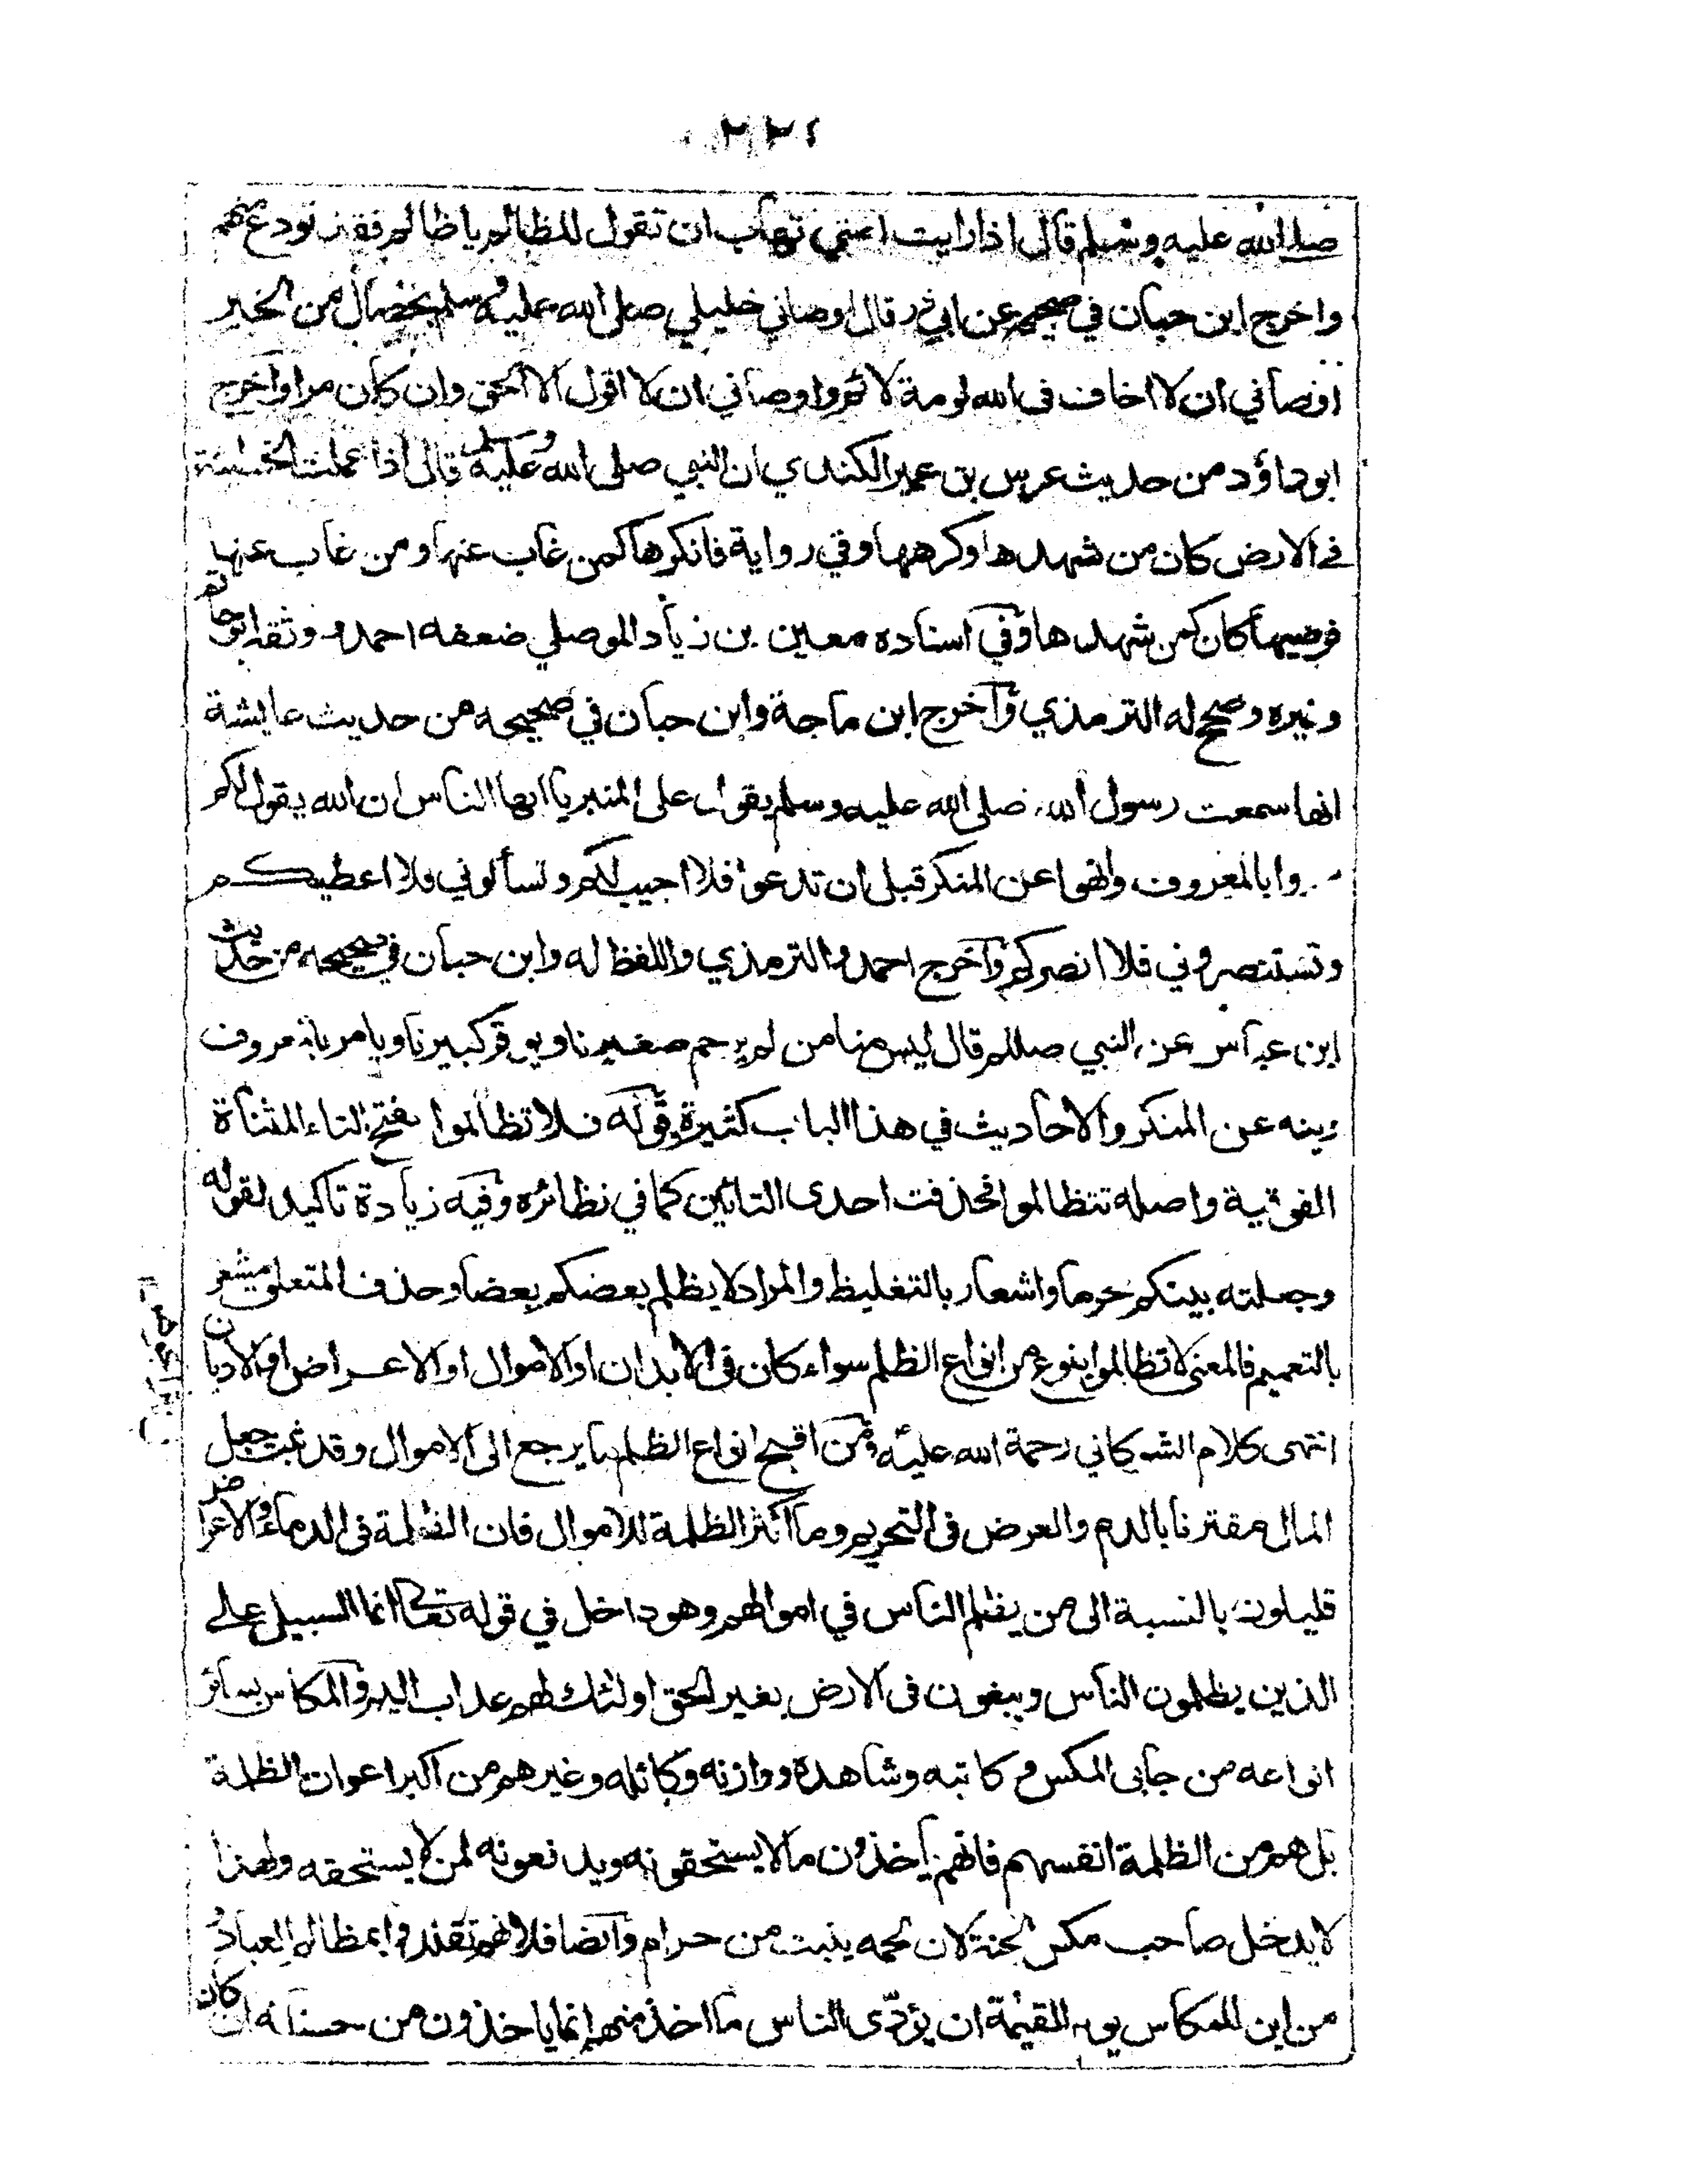 صلى الله عليه وسلم قال اذا رايت امتي تهاب ان تقول للظالم يا ظالم فقد تودع منهم
واخرج ابن حبان في صحيحه عن ابي ذر قال اوصاني خليلي صلى الله عليه وسلم بخصال من الخير
اوصاني ان لا اخاف فى الله لومة لائم واوصاني ان لا اقول الا الحق وان كان مرا واخرج
ابو داؤد من حديث عرس بن عمير الكندي ان النبي صلى الله عليه وسلم قال اذا عملت الخطيئة
فى الارض كان من شهدها وكرهها وفي رواية فانكرها كمن غاب عنها ومن غاب عنها
فرضيها كان كمن شهدها وفي اسناده معين بن زياد الموصلي ضعفه احمد ووثقه ابو حاتم
وغيره وصحح له الترمذي واخرج ابن ماجة وابن حبان في صحيحه من حديث عايشة
انها سمعت رسول الله صلى الله عليه وسلم يقول على المنبر يا ايها الناس ان الله يقول لكم
وا بالمعروف وانهوا عن المنكر قبل ان تدعوا فلا اجيب لكم وتسألوني فلا اعطيكم
وتستنصروني فلا انصركم واخرج احمد والترمذي واللفظ له وابن حبان في صحيحه من حديث
ابن عباس عن النبي صللم قال ليس منا من لم يرحم صغيرنا ويوقر كبيرنا ويامر بالمعروف
وينه عن المنكر والاحاديث في هذا الباب كثيرة قوله فلا تظالموا بفتح التاء المثناة
الفوقية واصله تتظالموا فحذفت احدى التائين كما في نظائره وفيه زيادة تاكيد لقوله
وجعلته بينكم حرما واشعار بالتغليظ والمراد لا يظلم بعضكم بعضا وحذف المتعلق مشعر
بالتعميم فالمعنى لا تظالموا بنوع من انواع الظلم سواء كان فى الابدان او الاموال او الاعراض او الاديان
انتهى كلام الشوكاني رحمة الله عليه ومن اقبح انواع الظلم ما يرجع الى الاموال وقد ثبت جعل
المال مقترنا بالدم والعرض فى التحريم وما اكثر الظلمة للاموال فان الظلمة فى الدماء والاعراض
قليلون بالنسبة الى من يظلم الناس في اموالهم وهو داخل في قوله تعالى انما السبيل على
الذين يظلمون الناس ويبغون فى الارض بغير الحق اولئك لهم عذاب اليم والمكاس بسائر
انواعه من جابى المكس وكاتبه وشاهده ووازنه وكائله وغيرهم من اكبر اعوان الظلمة
بل هم من الظلمة انفسهم فانهم ياخذون مالا يستحقونه ويدفعونه لمن لا يستحقه ولهذا
لا يدخل صاحب مكس الجنة لان لحمه ينبت من حرام وايضا فلانهم تقلدوا بمظالم العباد
من اين للمكاس يوم القيمة ان يؤدى الناس ما اخذ منهم انما ياخذون من حسناته ان كان